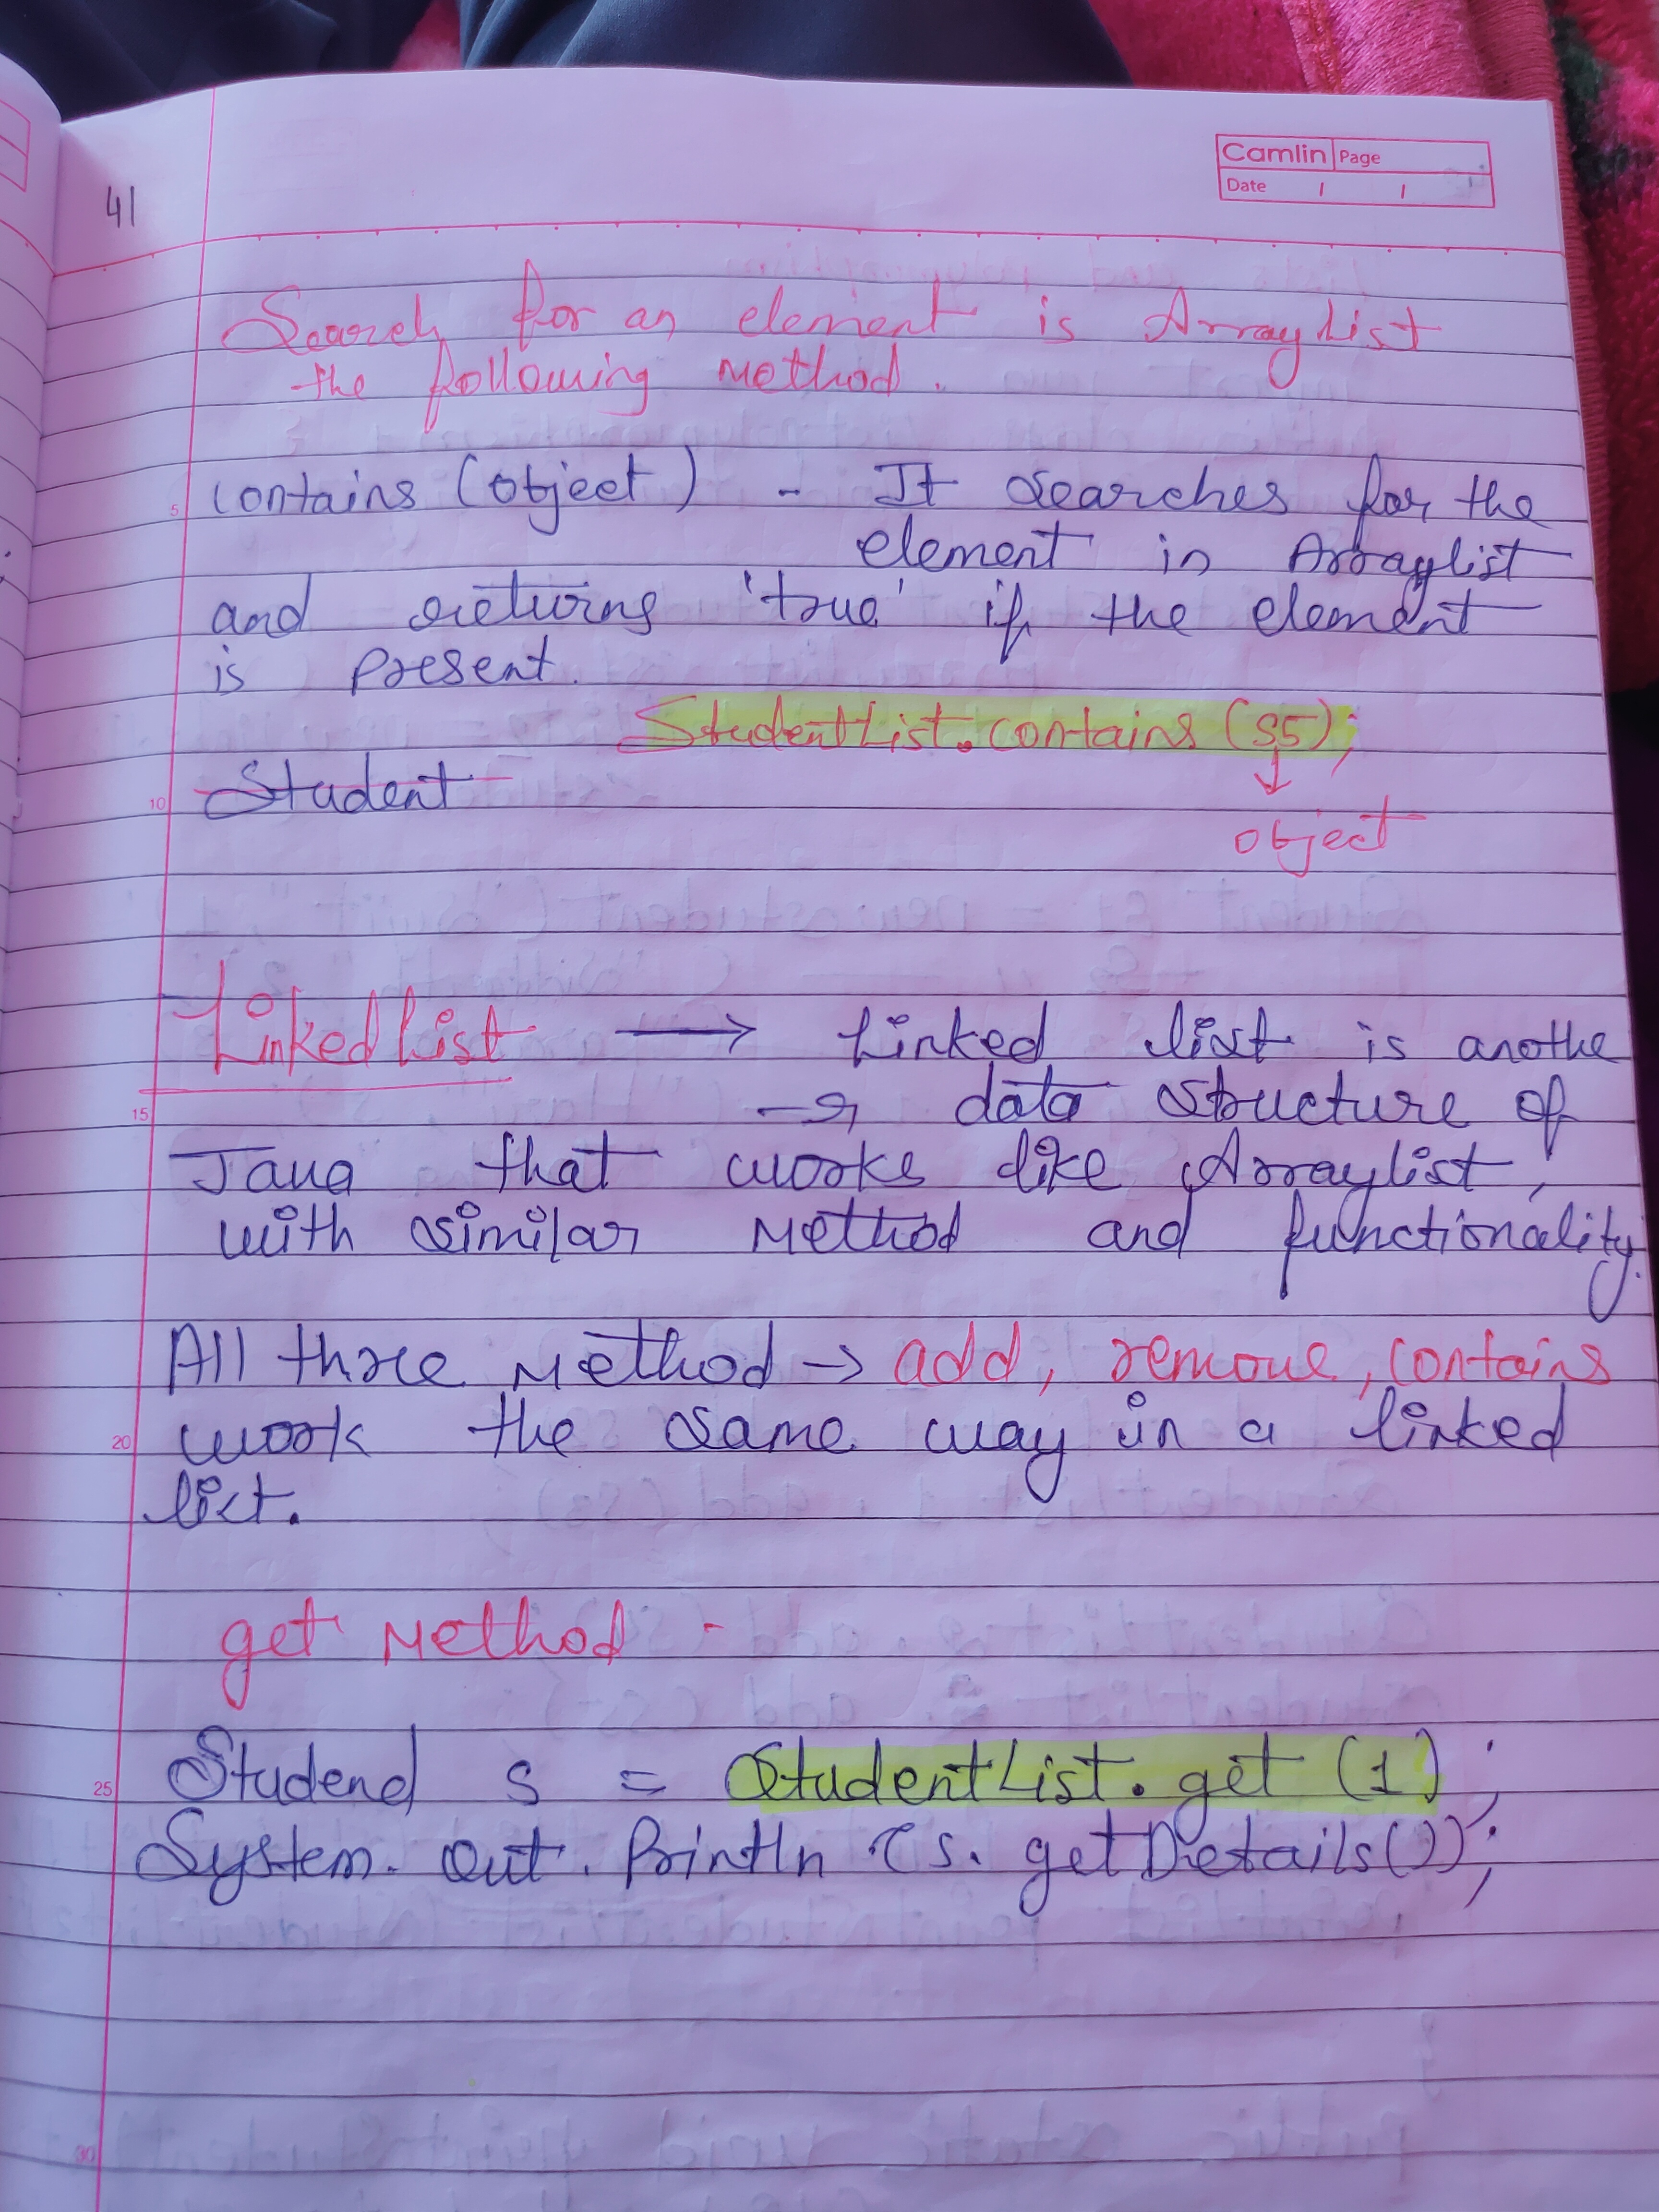 Camlin Page
Date / /
41
Search for an element is ArrayList
the following Method.
contains (object) - It searches for the
element in Arraylist
and returns 'true' if the element
is Present.
StudentList.contains (S5);
Student
object
Linked List → Linked list is anothe
→ r data structure of
Java that works like Arraylist,
with similar Method and functionality.
All three Method → add, remove, contains
work the same way in a linked
list.
get Method -
Studend s = StudentList.get (1);
System. Out. Println (s. getDetails());
5
10
15
20
25
30